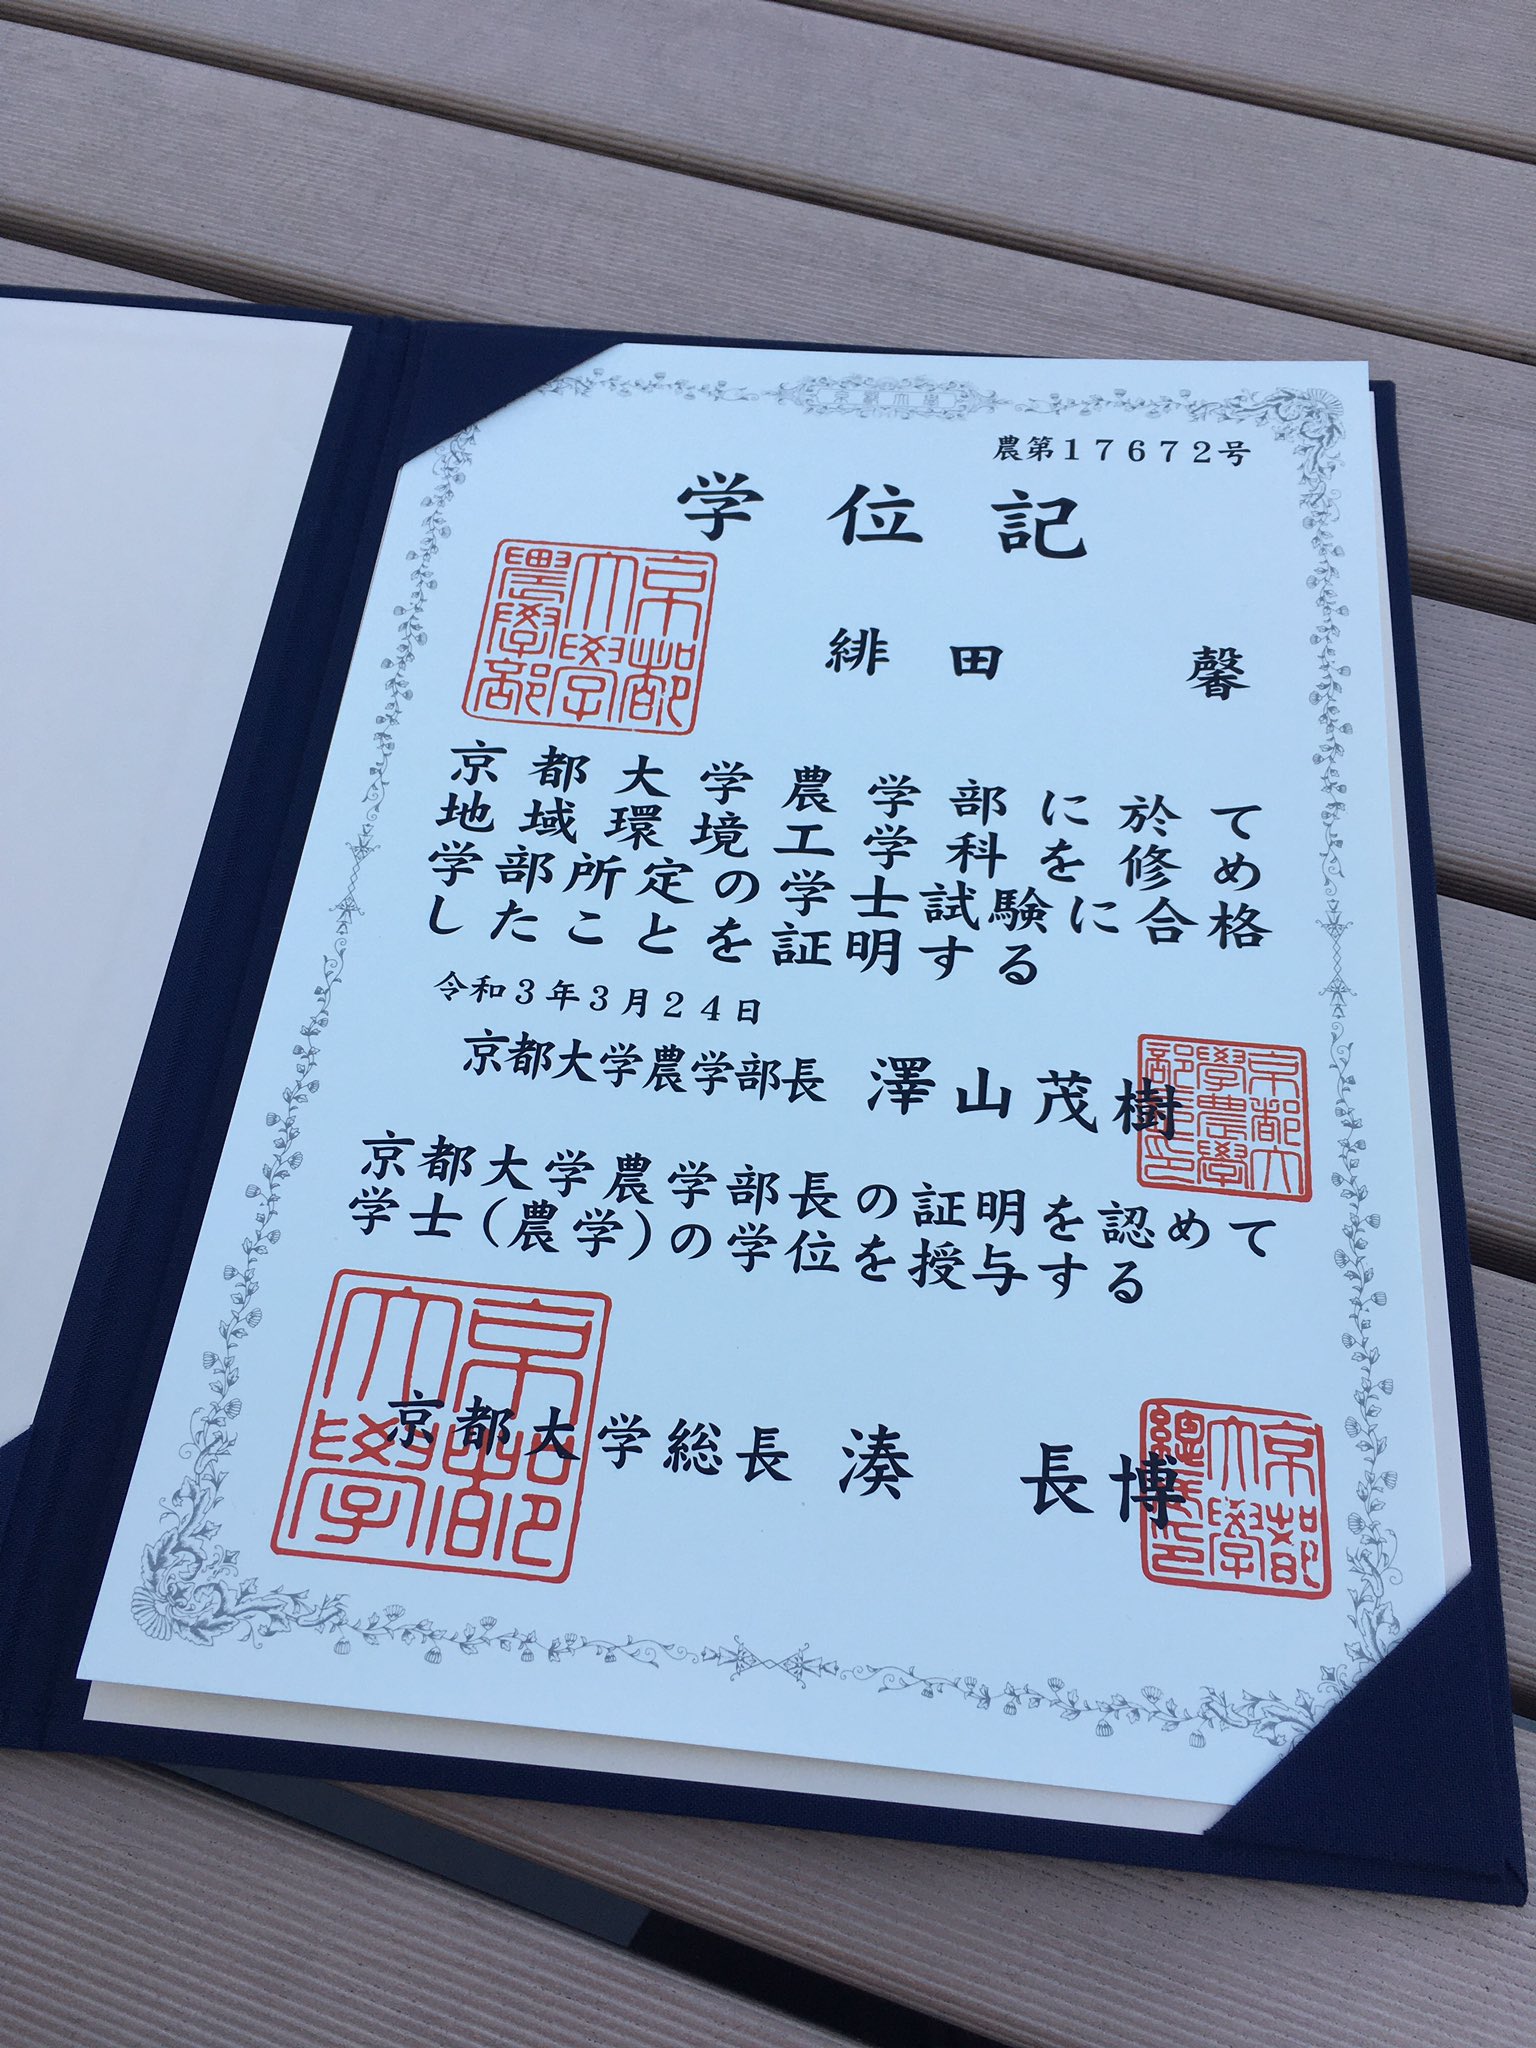 京都大學
農第17672号
学位記
京都大學農學部
緋田 馨
京都大学農学部に於て
地域環境工学科を修め
学部所定の学士試験に合格
したことを証明する
令和3年3月24日
京都大学農学部長 澤山茂樹
京都大學農學部長印
京都大学農学部長の証明を認めて
学士(農学)の学位を授与する
京都大學
京都大学総長 湊 長博
京都大學總長印